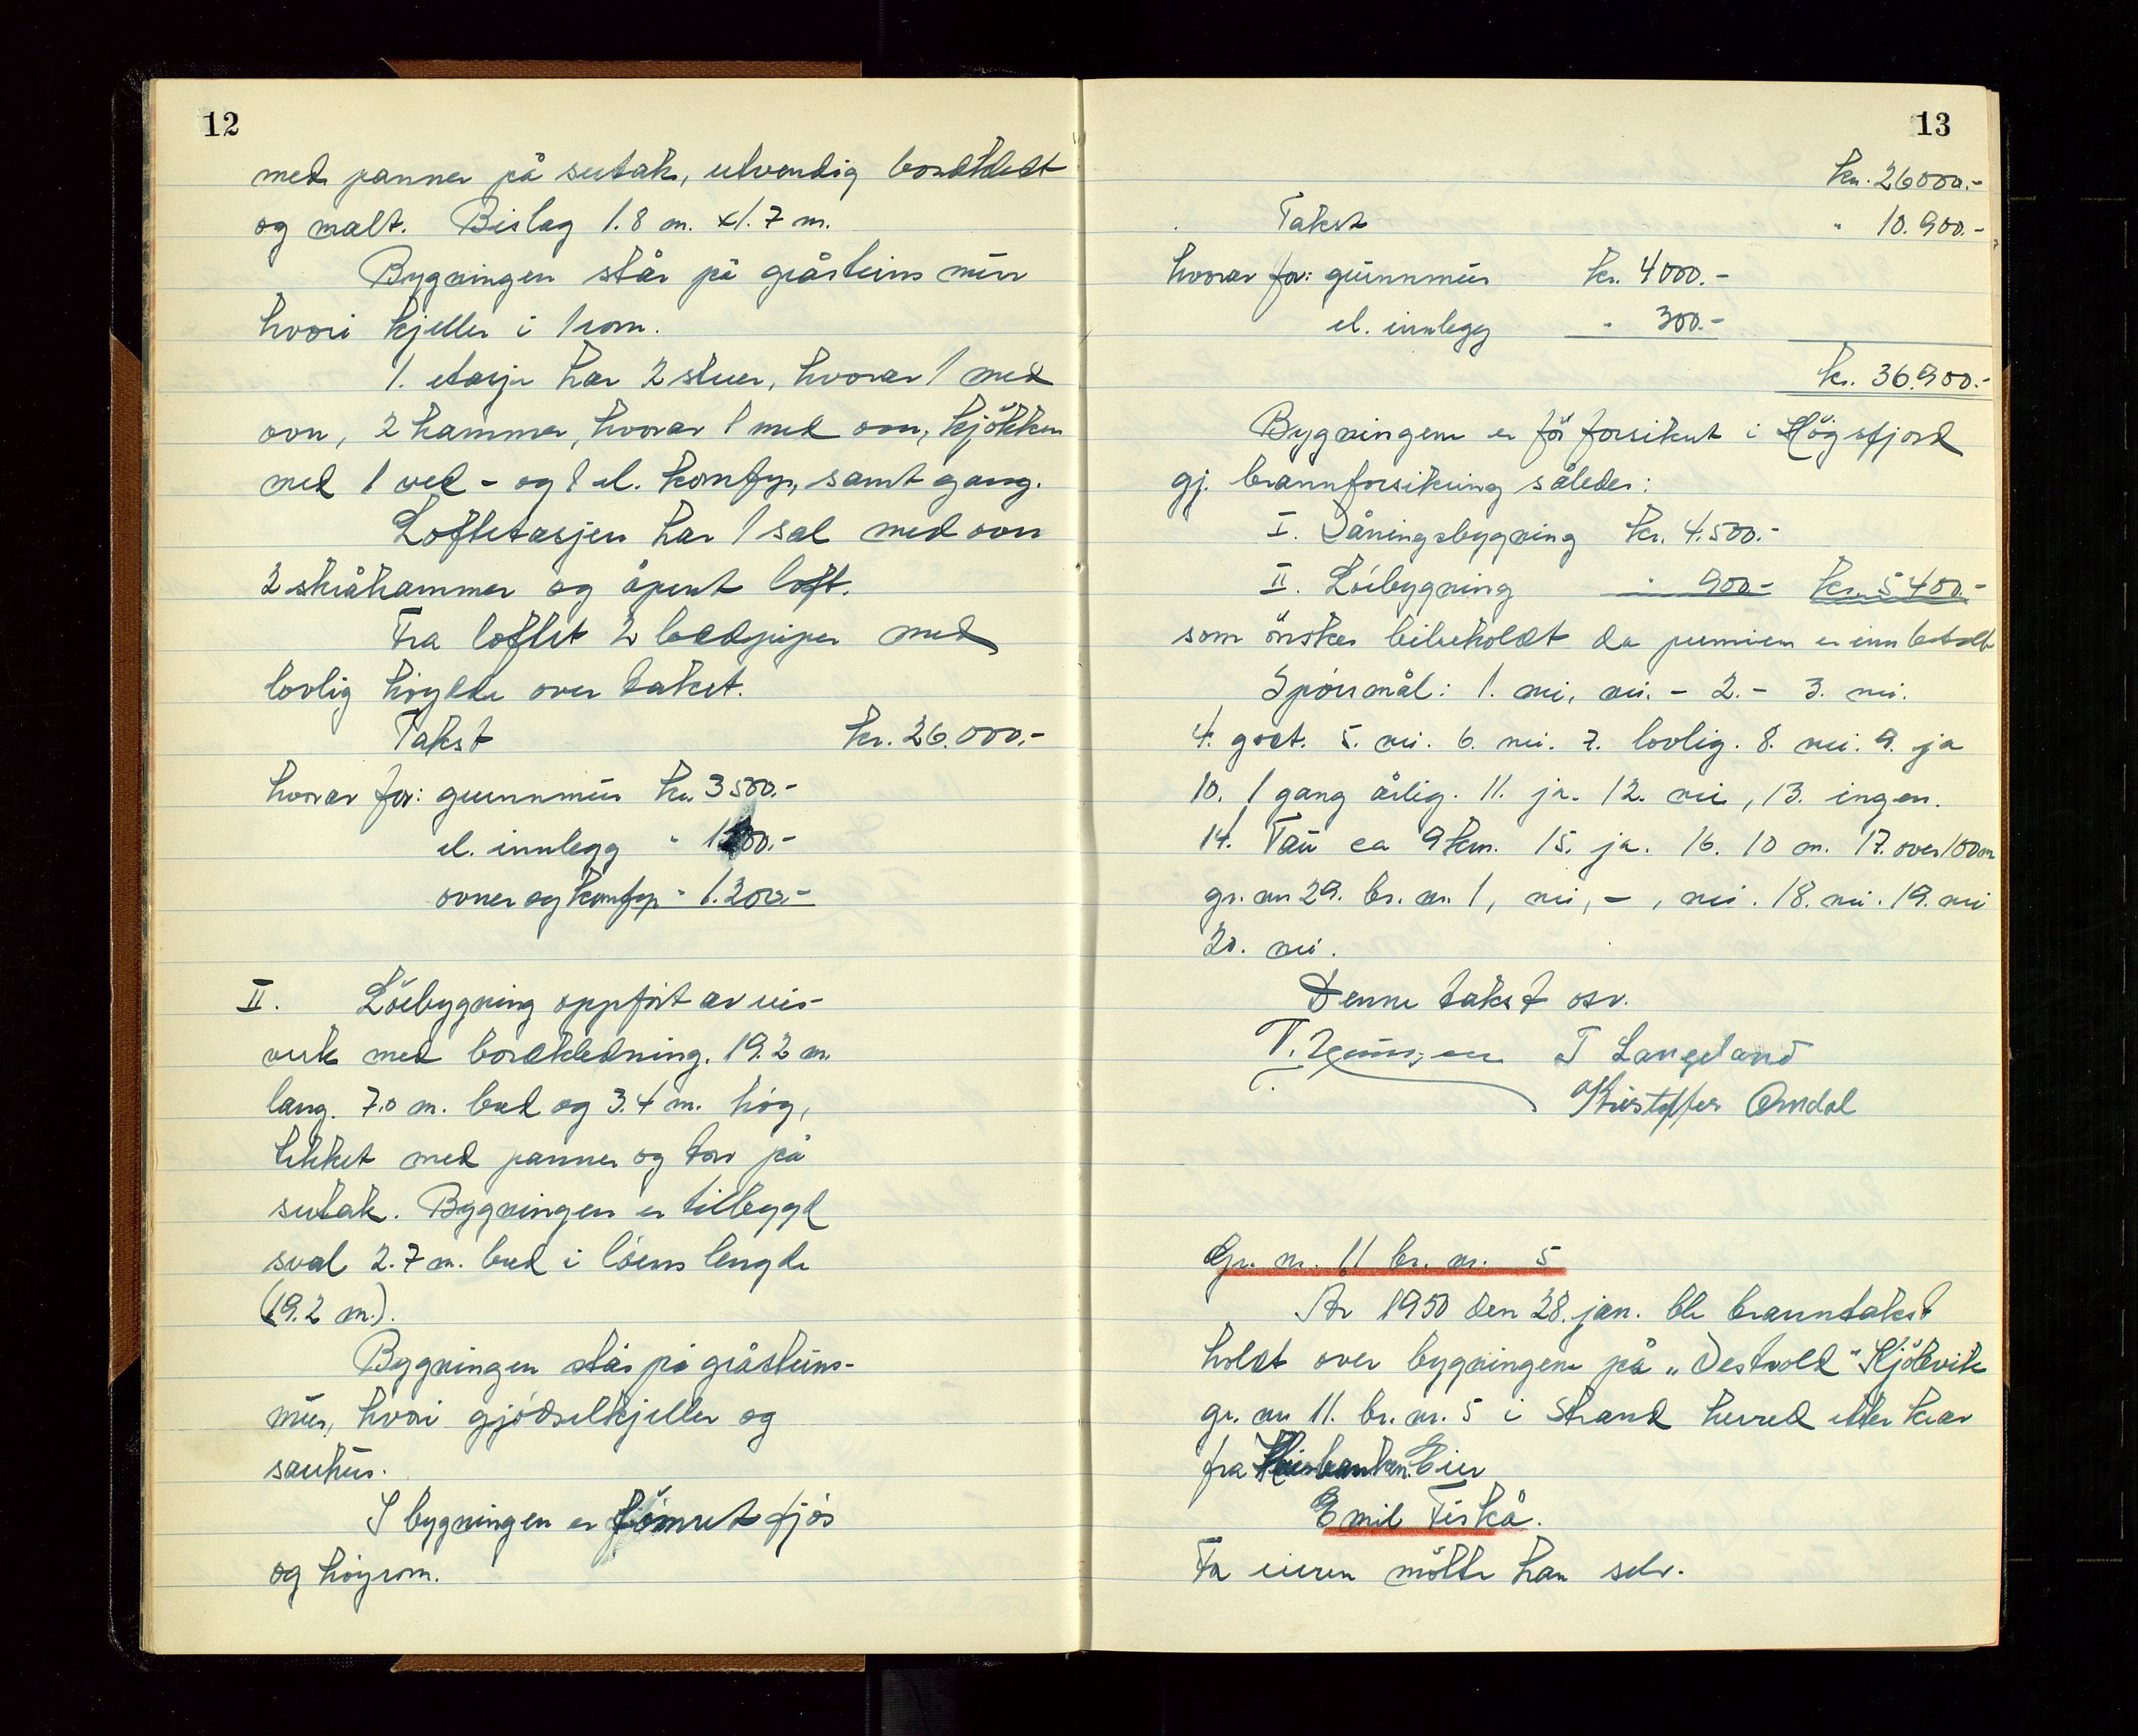 12
med panner på sutak, utvendig bordkledt
og malt. Bislag 1.8 m. x 1.7 m.
Bygningen står på gråsteins mur
hvori kjeller i 1 rom.
1. etasje har 2 stuer, hvorav 1 med
ovn, 2 kammer, hvorav 1 med ovn, kjøkken
med 1 ved - og 1 el. komfyr, samt gang.
Loftetasjen har 1 sal med ovn
2 skråkammer og åpent loft.
Fra loftet 2 lecdpiper med
lovlig høyde over taket.
Takst kr. 26.000.-
hvorav for: grunnmur kr. 3500.-
el. innlegg " 1100.-
ovner og komfyr " 1.200.-
II. Löebygning oppført av reis-
verk med bordkledning. 19.2 m.
lang. 7.0 m. bred og 3.4 m. høg,
tekket med panner og torv på
sutak. Bygningen er tilbygd
sval 2.7 m. bred i löens lengde
(19.2 m.).
Bygningen står på gråsteins-
mur, hvori gjødselkjeller og
sauhus.
I bygningen er tømret fjös
og høyrom.
13
kr. 26000.-
Takst " 10.900.-
hvorav for: grunnmur kr. 4000.-
el. innlegg " 300.-
kr. 36.900.-
Bygningene er før forsikret i Høgsfjord
gj. brannforsikring således:
I. Våningsbygning kr. 4.500.-
II. Löebygning " 900.- kr. 5400.-
som ønskes bibeholdt da premien er innbetalt
Spørsmål: 1. nei, nei. - 2. - 3. nei.
4. godt. 5. nei. 6. nei. 7. lovlig. 8. nei. 9. ja
10. 1 gang årlig. 11. ja. 12. nei, 13. ingen.
14. Tau ca 9 km. 15. ja. 16. 10 m. 17. over 100 m
gr. nr 29. br. nr. 1, nei, - , nei. 18. nei. 19. nei
20. nei.
Denne takst osv.
T. T Langeland
Kristoffer Omdal
Gr. nr. 11 br. nr. 5
År 1950 den 28. jan. ble branntakst
holdt over bygningene på „Vestvold" Kjølevik
gr. nr 11. br. nr. 5 i Strand herred etter krav
fra Husbanken. Eier
Emil Fiskå.
Fra eieren møtte han selv.